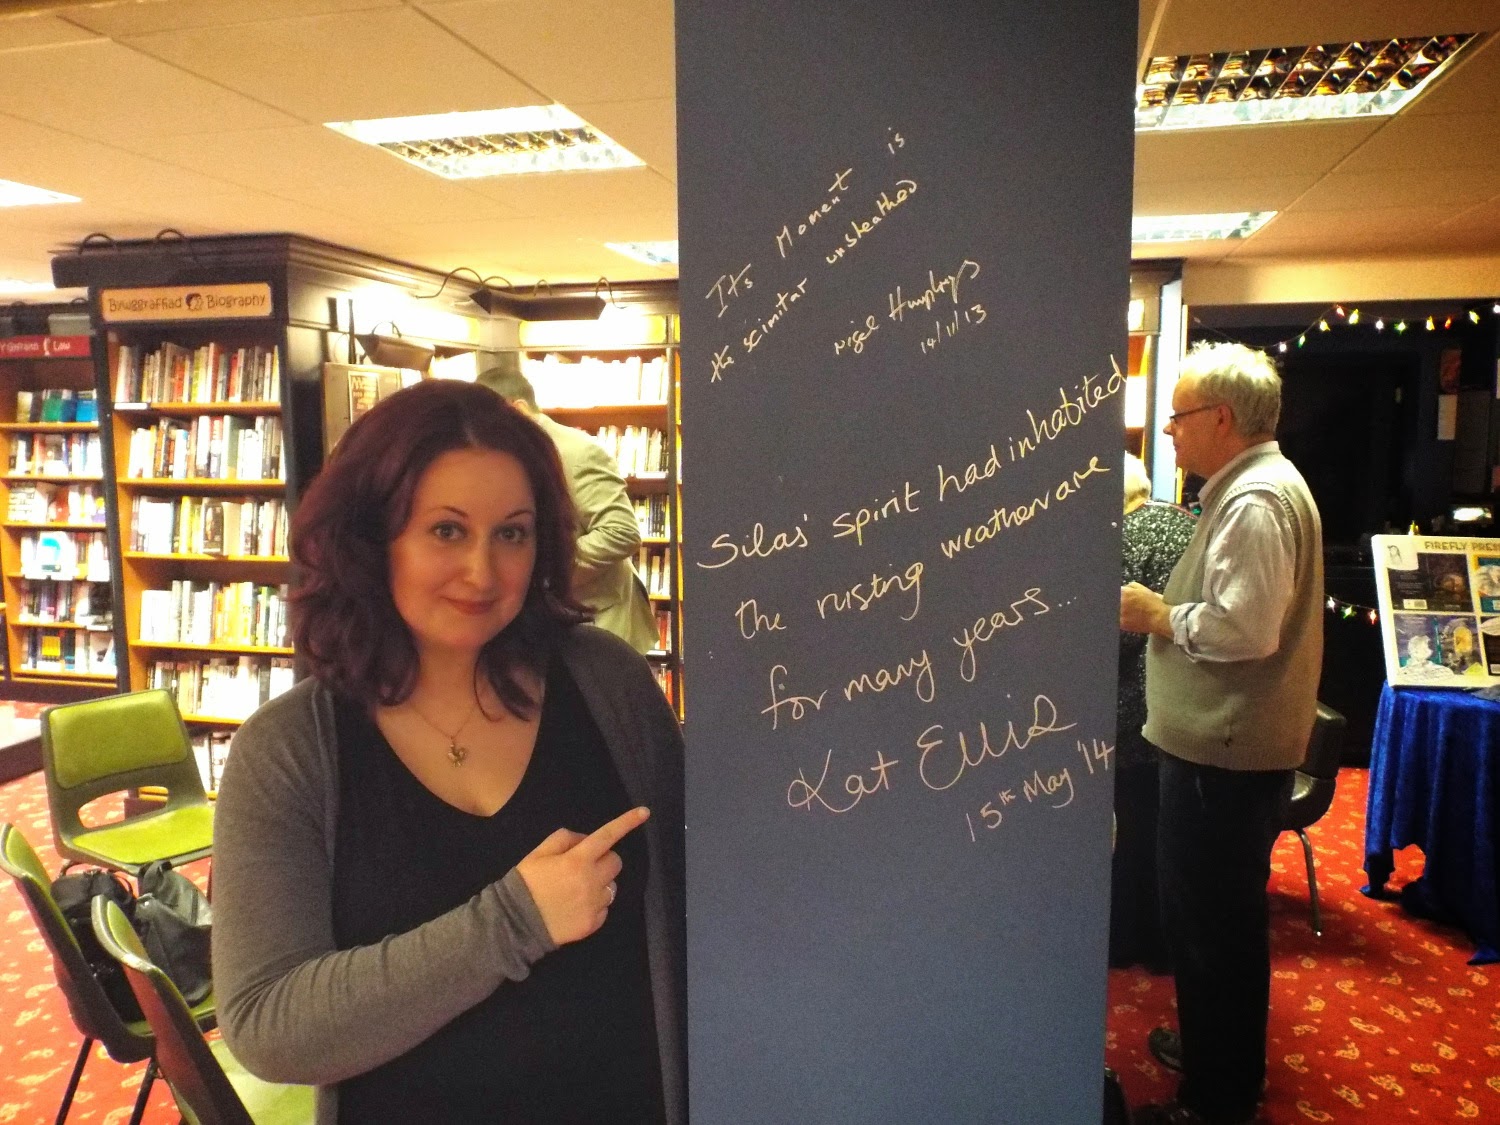 Bywgraffiad Biography
Law
It's Moment is
the scimitar unsheathed
Nigel Humphreys
14/11/13
Silas' spirit had inhabited
the rusting weathervane
for many years...
Kat Ellis
15th May '14
FIREFLY PRESS